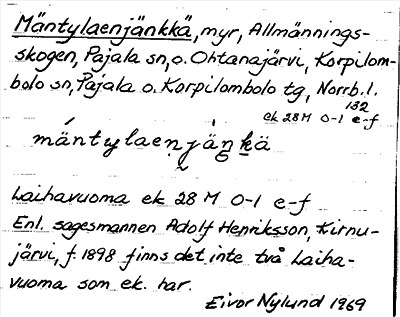 Mäntylaenjänkkä, myr, Allmännings-
skogen, Pajala sn, o. Ohtanajärvi, Korpilom-
bolo sn, Pajala o. Korpilombolo tg, Norrb.l.
132
ek 28 M 0-1 e-f
mäntylaenjäŋkä
Laihavuoma ek 28 M 0-1 e-f
Enl. sagesmannen Adolf Henriksson, Kirnu-
järvi, f. 1898 finns det inte två Laiha-
vuoma som ek. har.
Eivor Nylund 1969